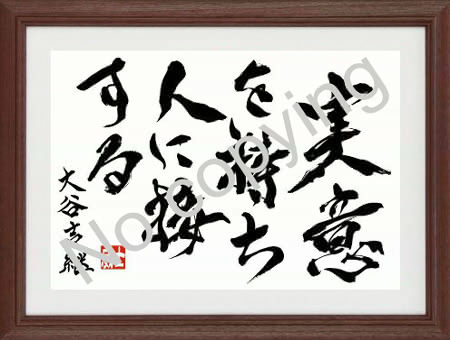 実意
を持ち
人に接
する
大谷吉継
No copying